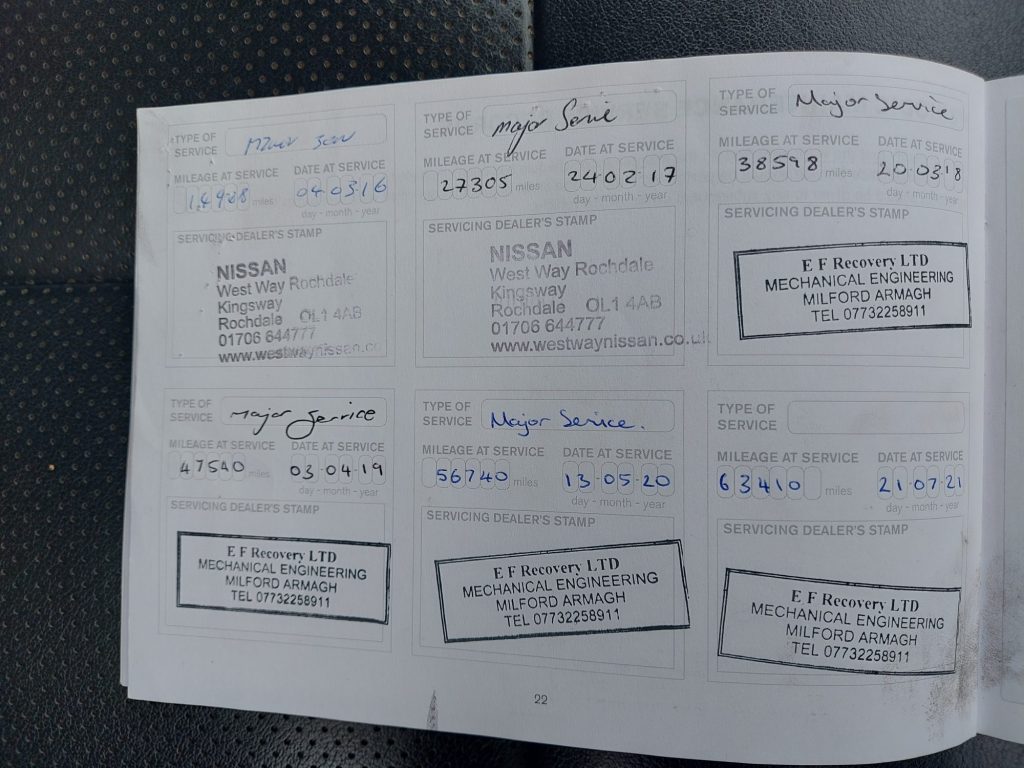 TYPE OF SERVICE
MILEAGE AT SERVICE DATE AT SERVICE
miles 04 03 16
day - month - year
SERVICING DEALER'S STAMP
NISSAN
West Way Rochdale
Kingsway
Rochdale OL1 4AB
01706 644777
www.westwaynissan.co
TYPE OF SERVICE major Servie
MILEAGE AT SERVICE DATE AT SERVICE
27305 miles 24 02 17
day - month - year
SERVICING DEALER'S STAMP
NISSAN
West Way Rochdale
Kingsway
Rochdale OL1 4AB
01706 644777
www.westwaynissan.co.uk
TYPE OF SERVICE Major Service
MILEAGE AT SERVICE DATE AT SERVICE
38598 miles 20 03 18
day - month - year
SERVICING DEALER'S STAMP
E F Recovery LTD
MECHANICAL ENGINEERING
MILFORD ARMAGH
TEL 07732258911
TYPE OF SERVICE Major Service
MILEAGE AT SERVICE DATE AT SERVICE
47540 miles 03 04 19
day - month - year
SERVICING DEALER'S STAMP
E F Recovery LTD
MECHANICAL ENGINEERING
MILFORD ARMAGH
TEL 07732258911
TYPE OF SERVICE Major Service.
MILEAGE AT SERVICE DATE AT SERVICE
56740 miles 13 05 20
day - month - year
SERVICING DEALER'S STAMP
E F Recovery LTD
MECHANICAL ENGINEERING
MILFORD ARMAGH
TEL 07732258911
TYPE OF SERVICE
MILEAGE AT SERVICE DATE AT SERVICE
63410 miles 21 07 21
day - month - year
SERVICING DEALER'S STAMP
E F Recovery LTD
MECHANICAL ENGINEERING
MILFORD ARMAGH
TEL 07732258911
22